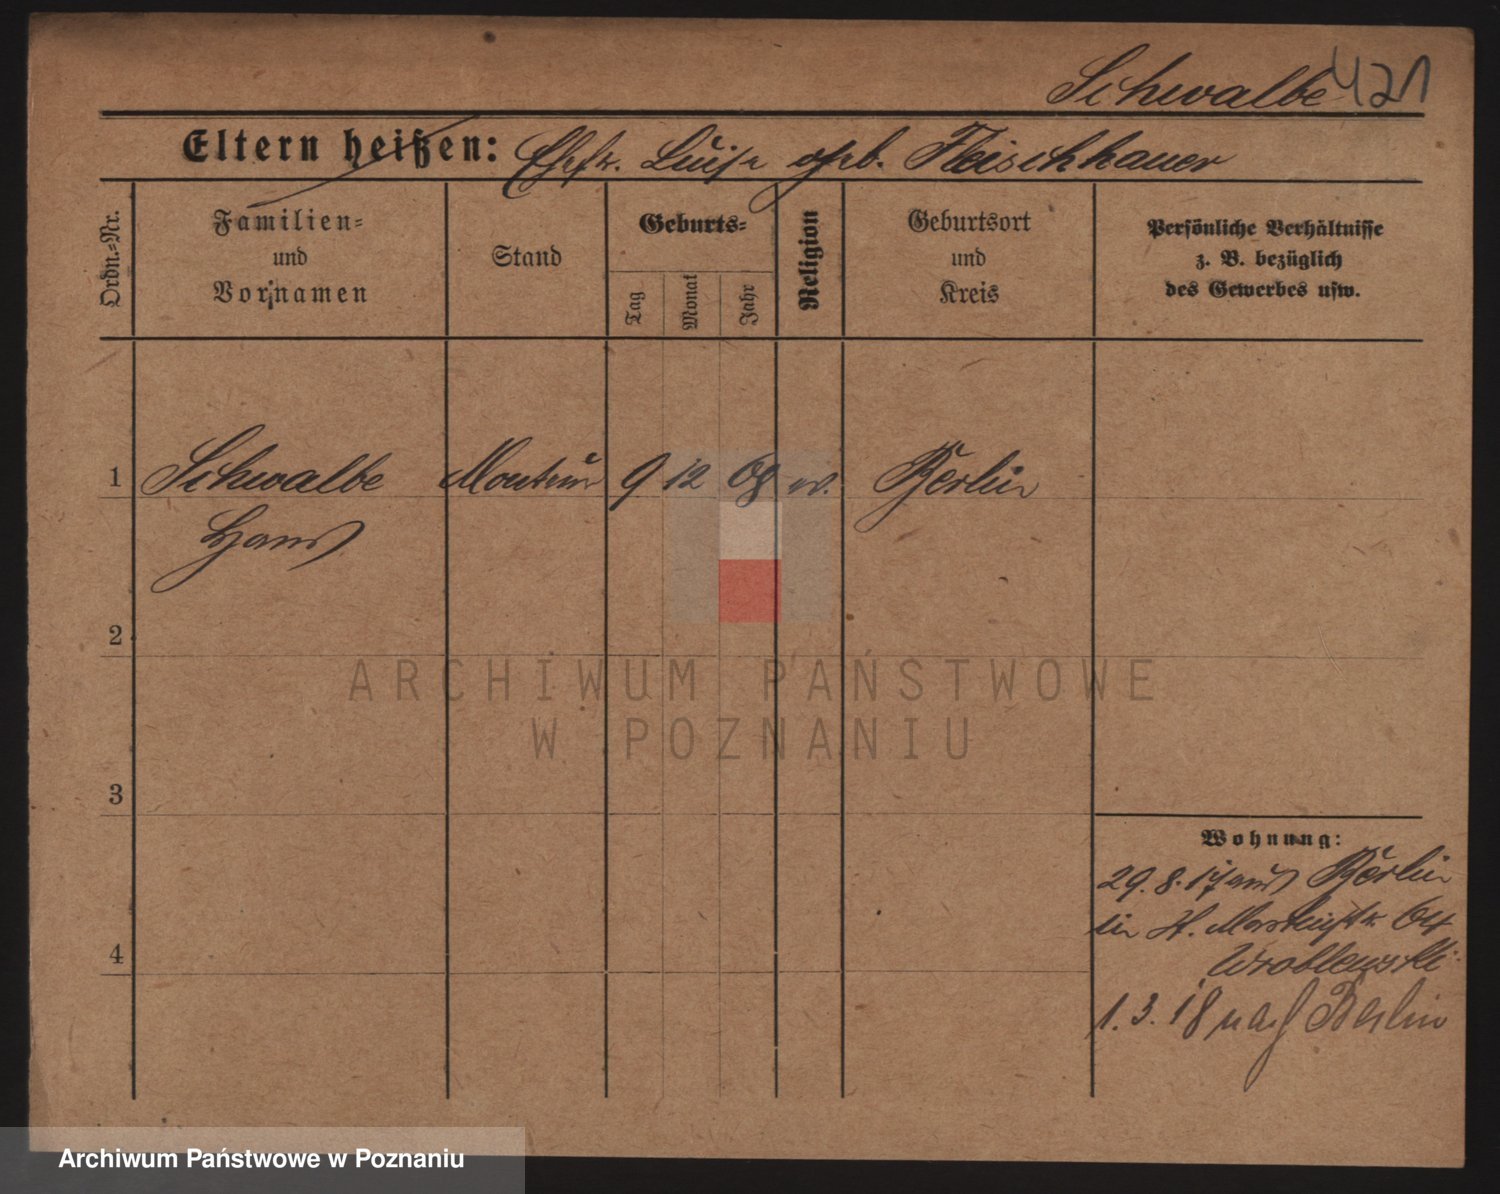 Schwalbe 421
Eltern heißen: Ehefr. Luise geb. Fleischhauer
Ordn.-Nr.
Familien-
und
Vornamen
Stand
Geburts-
Tag
Monat
Jahr
Religion
Geburtsort
und
Kreis
Persönliche Verhältnisse
z. B. bezüglich
des Gewerbes usw.
1 Schwalbe Monteur 9 12 68 ev. Berlin
Hans
2
3
4
Wohnung:
29.8.17 aus Berlin
in St. 64
Wroblewski
1.3.18 nach Berlin
ARCHIWUM PAŃSTWOWE
W POZNANIU
Archiwum Państwowe w Poznaniu